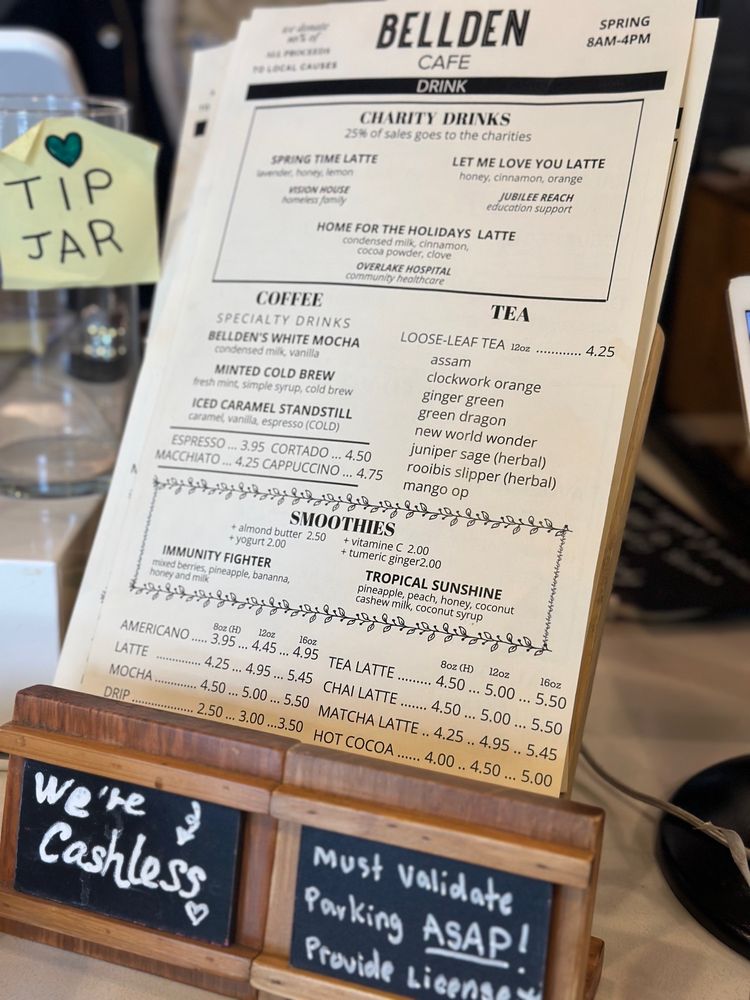 we donate
of
ALL PROCEEDS
TO LOCAL CAUSES
BELLDEN
CAFE
SPRING
8AM-4PM
DRINK
TIP
JAR
CHARITY DRINKS
25% of sales goes to the charities
SPRING TIME LATTE
lavender, honey, lemon
VISION HOUSE
homeless family
LET ME LOVE YOU LATTE
honey, cinnamon, orange
JUBILEE REACH
education support
HOME FOR THE HOLIDAYS LATTE
condensed milk, cinnamon,
cocoa powder, clove
OVERLAKE HOSPITAL
community healthcare
COFFEE
SPECIALTY DRINKS
BELLDEN'S WHITE MOCHA
condensed milk, vanilla
MINTED COLD BREW
fresh mint, simple syrup, cold brew
ICED CARAMEL STANDSTILL
caramel, vanilla, espresso (COLD)
ESPRESSO ... 3.95 CORTADO ... 4.50
MACCHIATO ... 4.25 CAPPUCCINO ... 4.75
TEA
LOOSE-LEAF TEA 12oz ............ 4.25
assam
clockwork orange
ginger green
green dragon
new world wonder
juniper sage (herbal)
rooibis slipper (herbal)
mango op
SMOOTHIES
+ almond butter 2.50
+ yogurt 2.00
+ vitamine C 2.00
+ tumeric ginger2.00
IMMUNITY FIGHTER
mixed berries, pineapple, bananna,
honey and milk
TROPICAL SUNSHINE
pineapple, peach, honey, coconut
cashew milk, coconut syrup
8oz (H) 12oz 16oz
AMERICANO ..... 3.95 ... 4.45 ... 4.95
LATTE ............ 4.25 ... 4.95 ... 5.45
MOCHA ........... 4.50 ... 5.00 ... 5.50
DRIP ............... 2.50 ... 3.00 ...3.50
8oz (H) 12oz 16oz
TEA LATTE ........ 4.50 ... 5.00 ... 5.50
CHAI LATTE ....... 4.50 ... 5.00 ... 5.50
MATCHA LATTE .. 4.25 .. 4.95 .. 5.45
HOT COCOA ...... 4.00 .. 4.50 ... 5.00
We're
Cashless
Must Validate
Parking ASAP!
Provide License